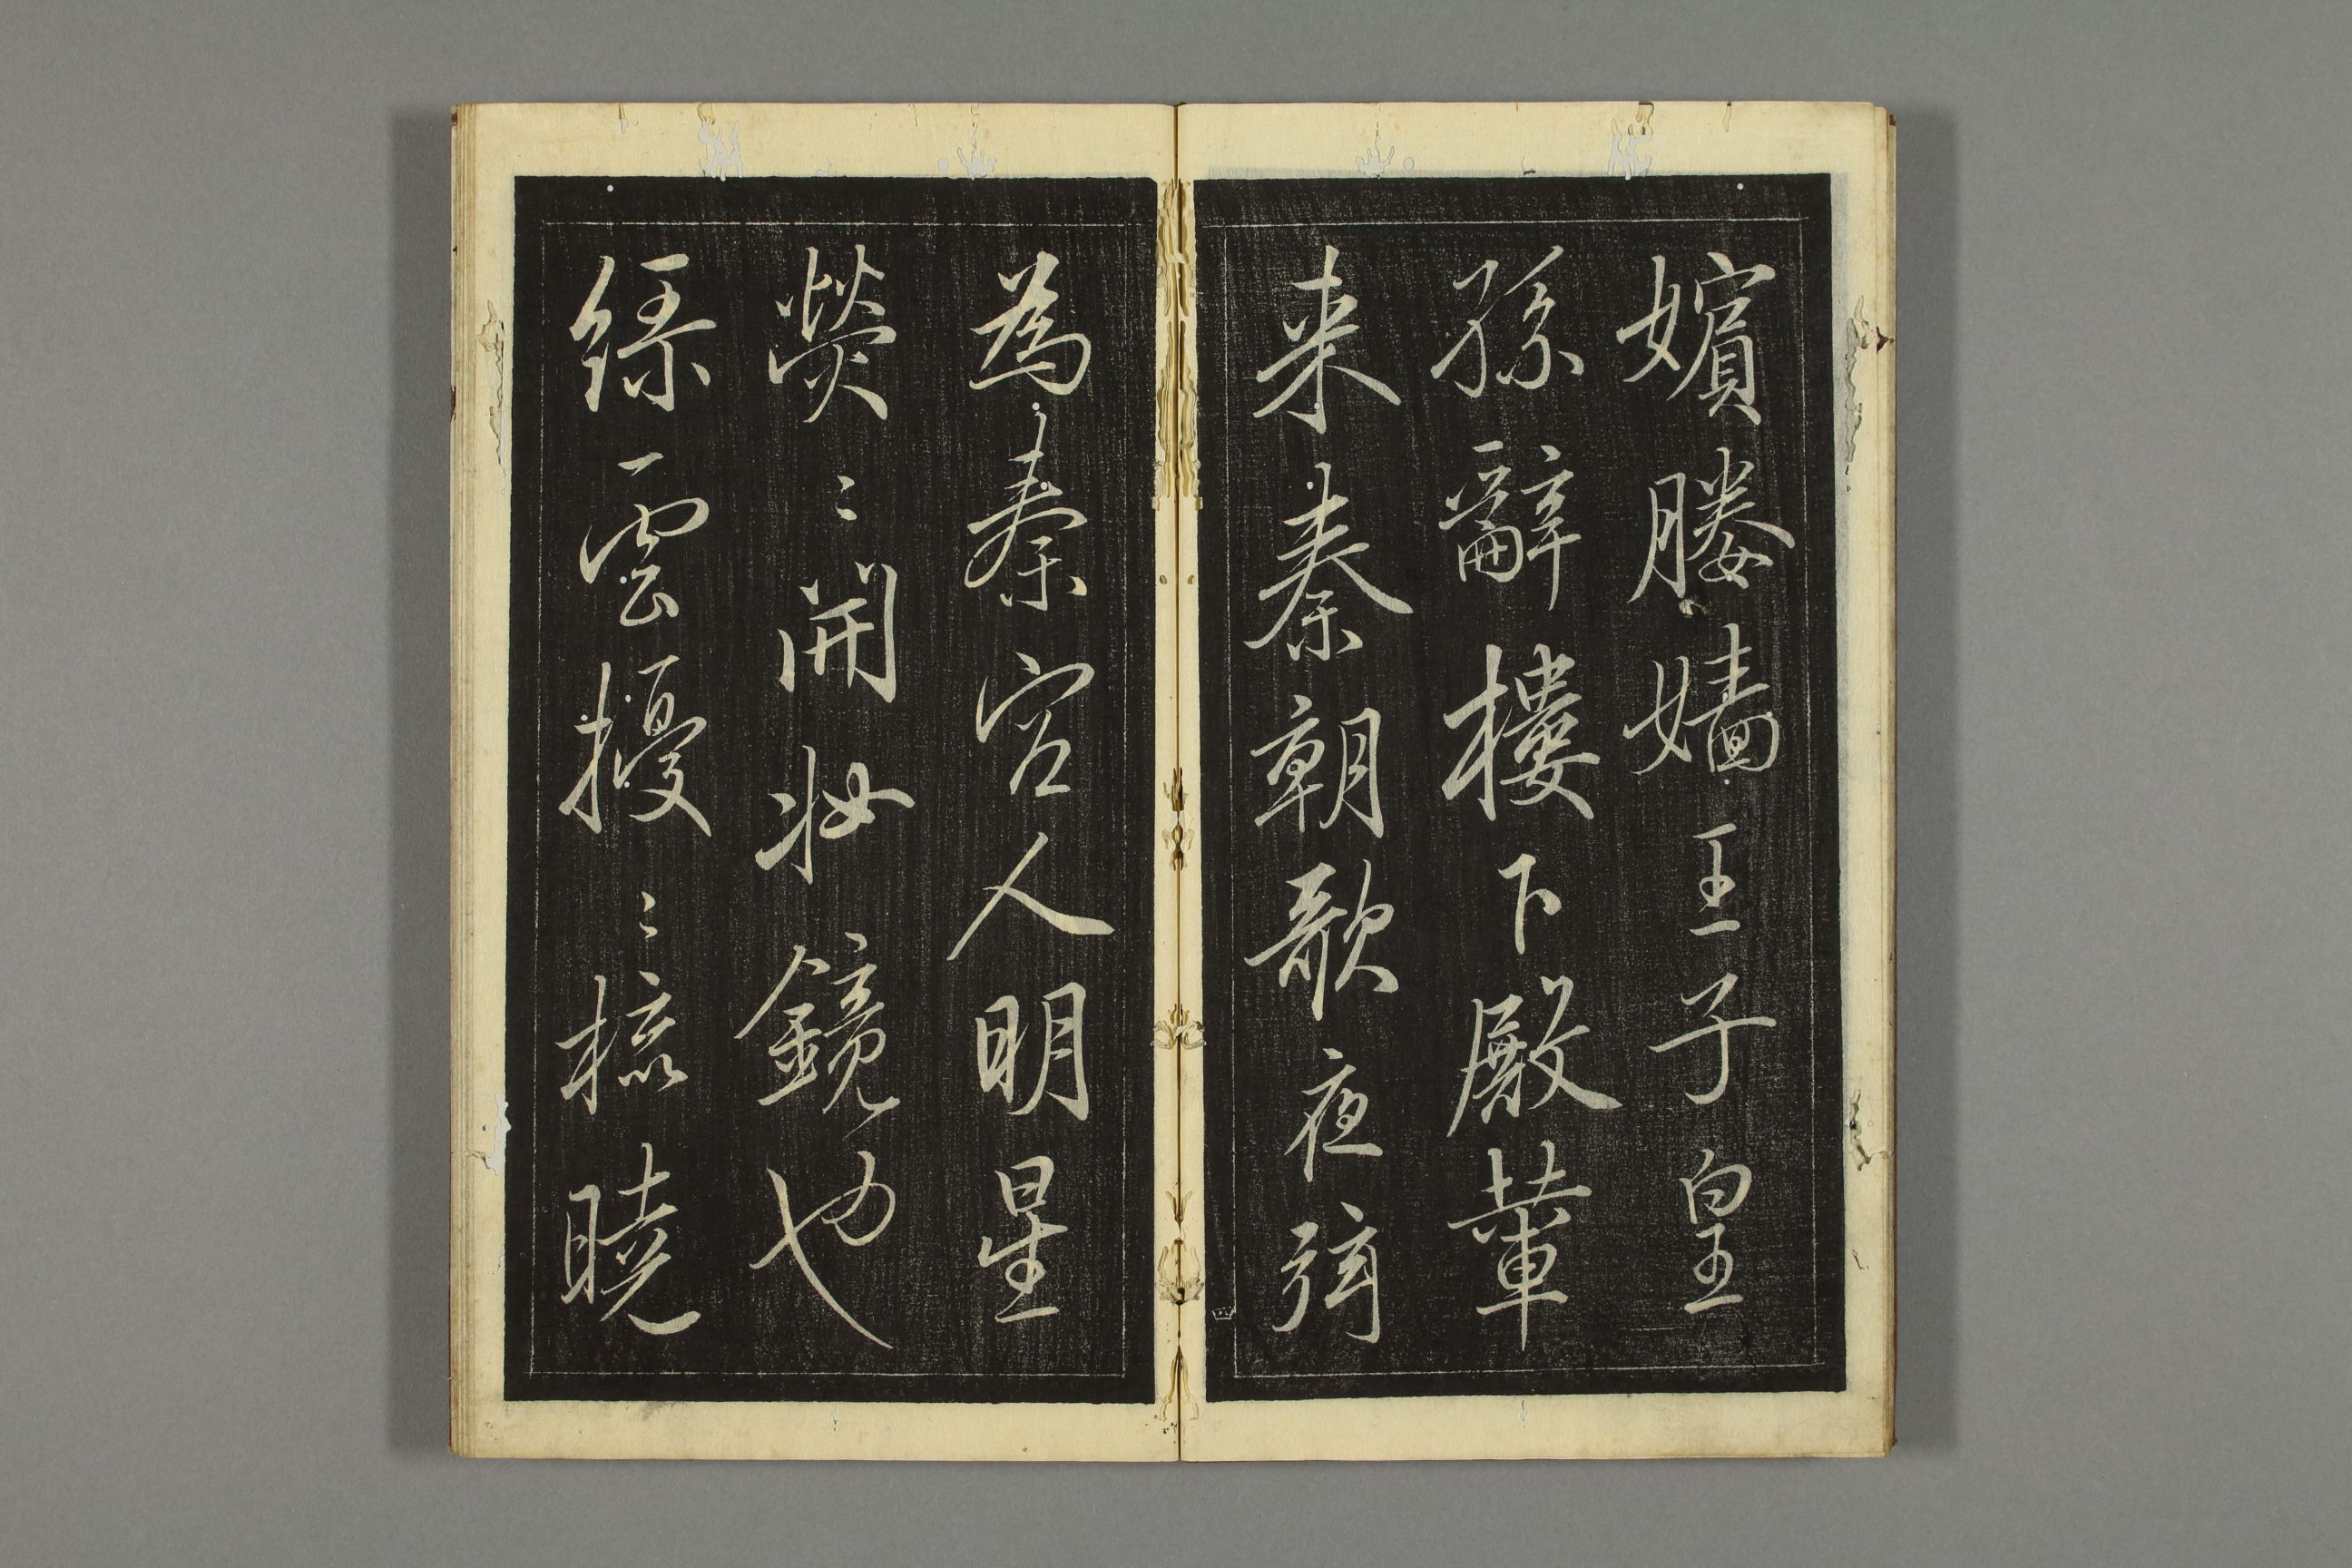 嬪媵嬙王子皇
孫辭樓下殿輦
来秦朝歌夜弦
為秦宮人明星
熒〻開妝鏡也
綠雲擾〻梳曉